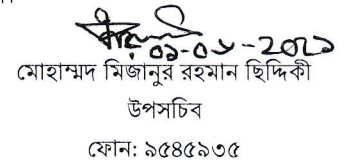 ০১-০৮-২০২১
মোহাম্মদ মিজানুর রহমান ছিদ্দিকী
উপসচিব
ফোন: ৯৫৪৫৯৩৫